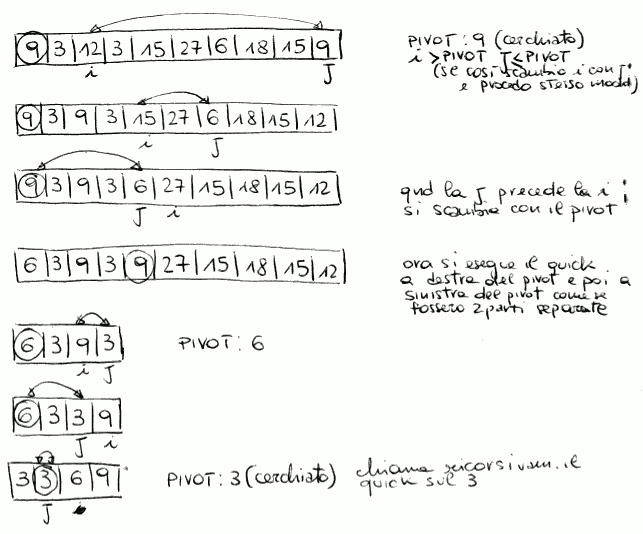 9|3|12|3|15|27|6|18|15|9
i J
PIVOT: 9 (cerchiato)
i >PIVOT J≤PIVOT
(se così scambio i con J
e procedo stesso modo)
9|3|9|3|15|27|6|18|15|12
i J
9|3|9|3|6|27|15|18|15|12
J i
qnd la J precede la i
si scambia con il pivot
6|3|9|3|9|27|15|18|15|12
ora si esegue il quick
a destra del pivot e poi a
sinistra del pivot come se
fossero 2 parti separate
6|3|9|3
i J
PIVOT: 6
6|3|3|9
J i
3|3|6|9
J i
PIVOT: 3 (cerchiato) chiama ricorsivam. il
quick sul 3